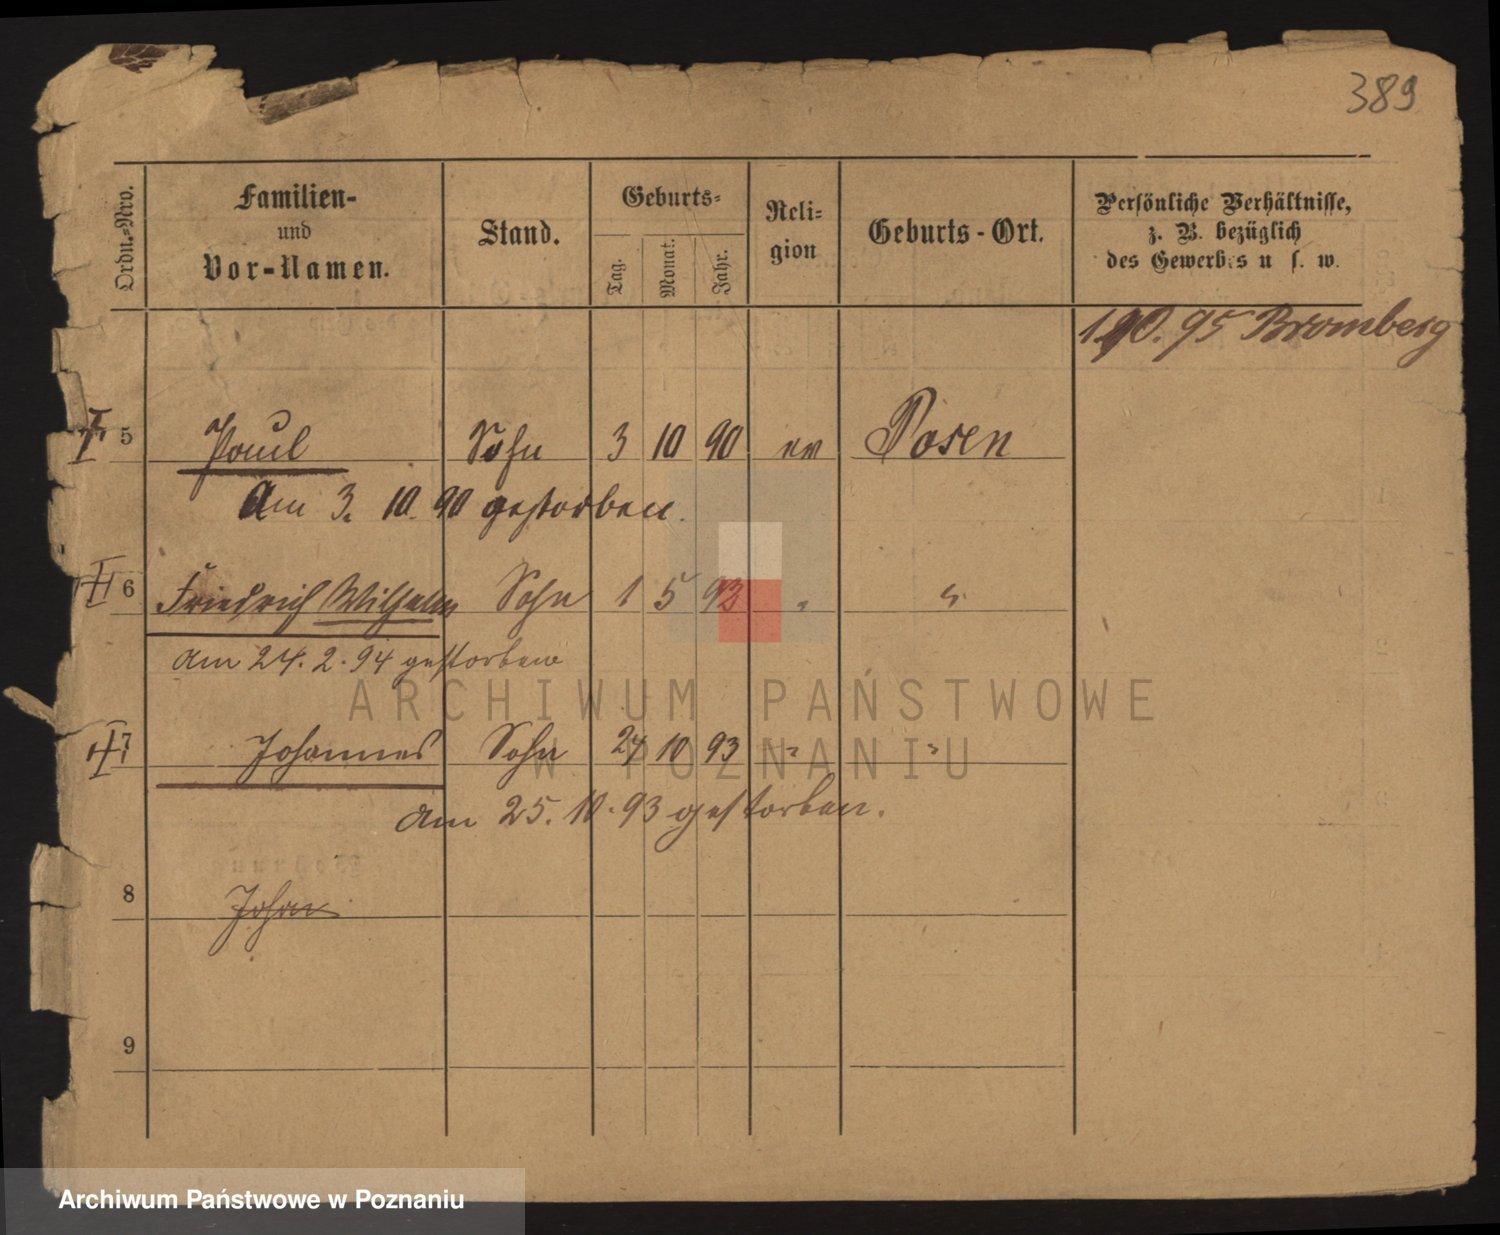 389
Ordn.-Nro.
Familien-
und
Vor-Namen.
Stand.
Geburts-
Tag.
Monat.
Jahr.
Reli-
gion
Geburts-Ort.
Persönliche Verhältnisse,
z. B. bezüglich
des Gewerbes u s. w.
95 Bromberg
5 Paul Sohn 3 10 90 ev Posen
Am 3. 10. 90 gestorben.
6 Friedrich Wilhelm Sohn 1 5 93 " "
am 24. 2. 94 gestorben
7 Johannes Sohn 24 10 93 " "
am 25. 10. 93 gestorben.
8 Johan
9
ARCHIWUM PAŃSTWOWE
W POZNANIU
Archiwum Państwowe w Poznaniu